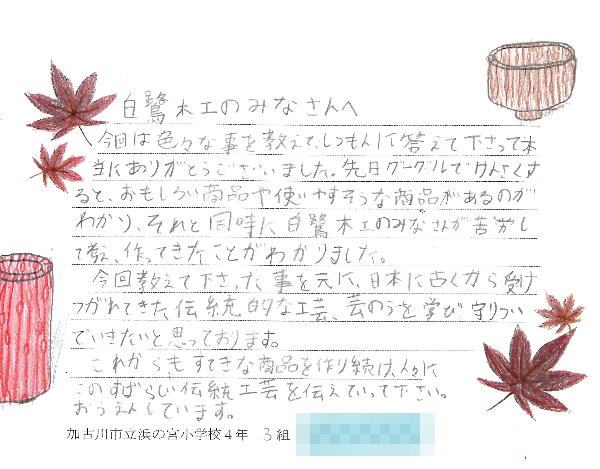 白鷺木工のみなさんへ
今回は色々な事を教えて、しつもんに答えて下さって本
当にありがとうございました。先日グーグルでけんさくす
ると、おもしろい商品や使いやすそうな商品があるのが
わかり、それと同時に白鷺木工のみなさんが苦労し
て考え、作ってきたことがわかりました。
今回教えて下さった事を元に、日本に古くから受け
つがれてきた伝統的な工芸、芸のうを学び守りつい
でいきたいと思っております。
これからもすてきな商品を作り続け、人々に
このすばらしい伝統工芸を伝えていって下さい。
おうえんしています。
加古川市立浜の宮小学校4年 3組